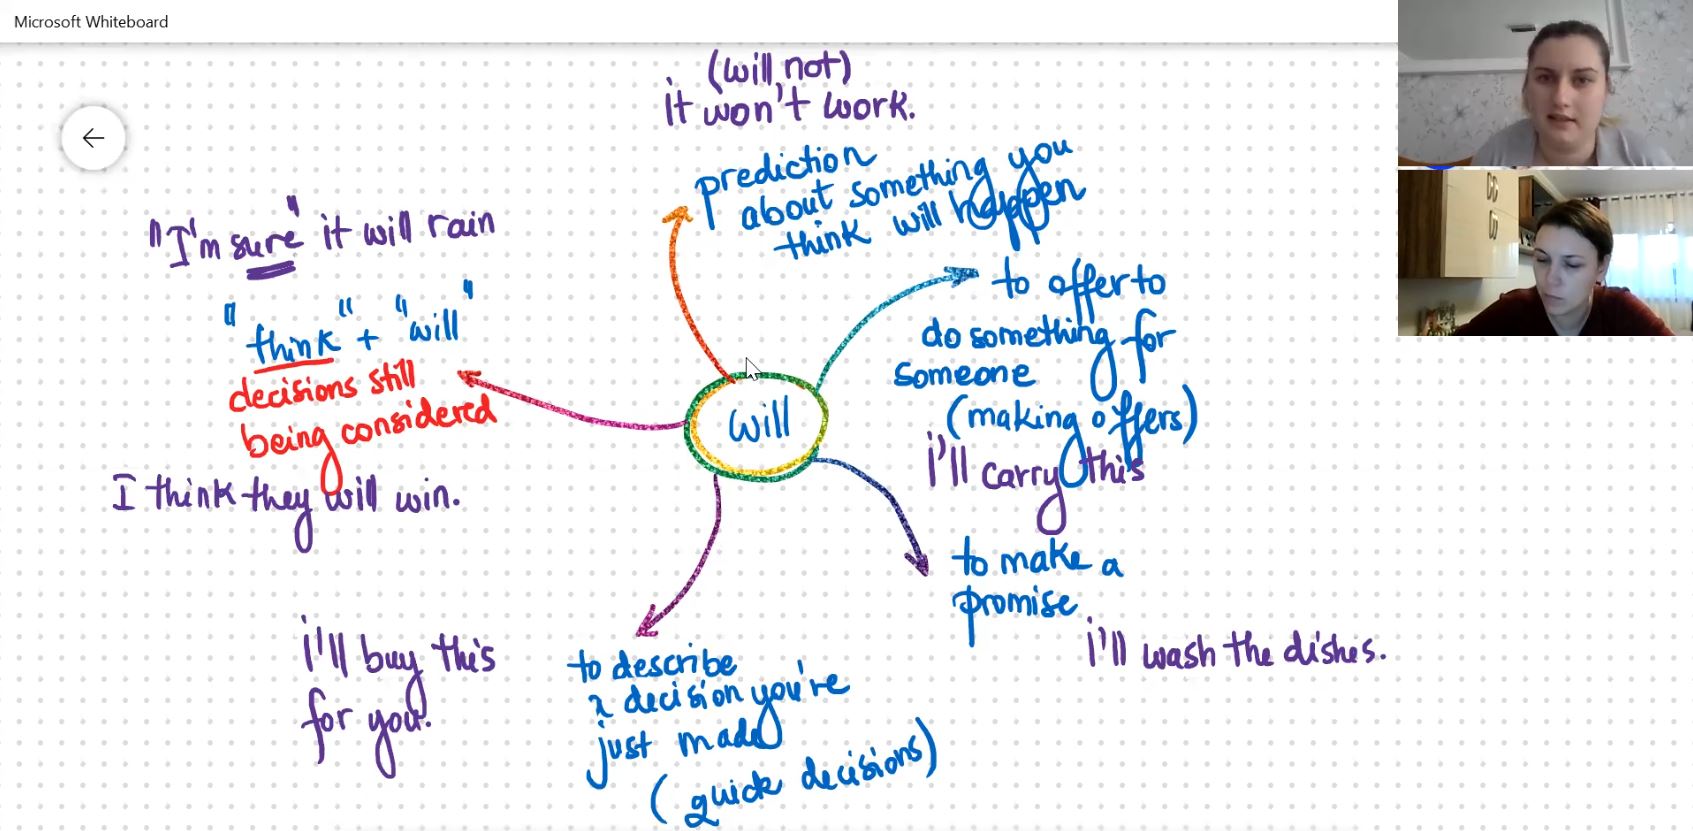 Microsoft Whiteboard
(will not)
it won't work.
prediction
about something you
think will happen
"I'm sure" it will rain
"think" + "will"
decisions still
being considered
I think they will win.
to offer to
do something for
someone
(making offers)
i'll carry this
will
to make a
promise
i'll wash the dishes.
i'll buy this
for you.
to describe
a decision you're
just made
(quick decisions)